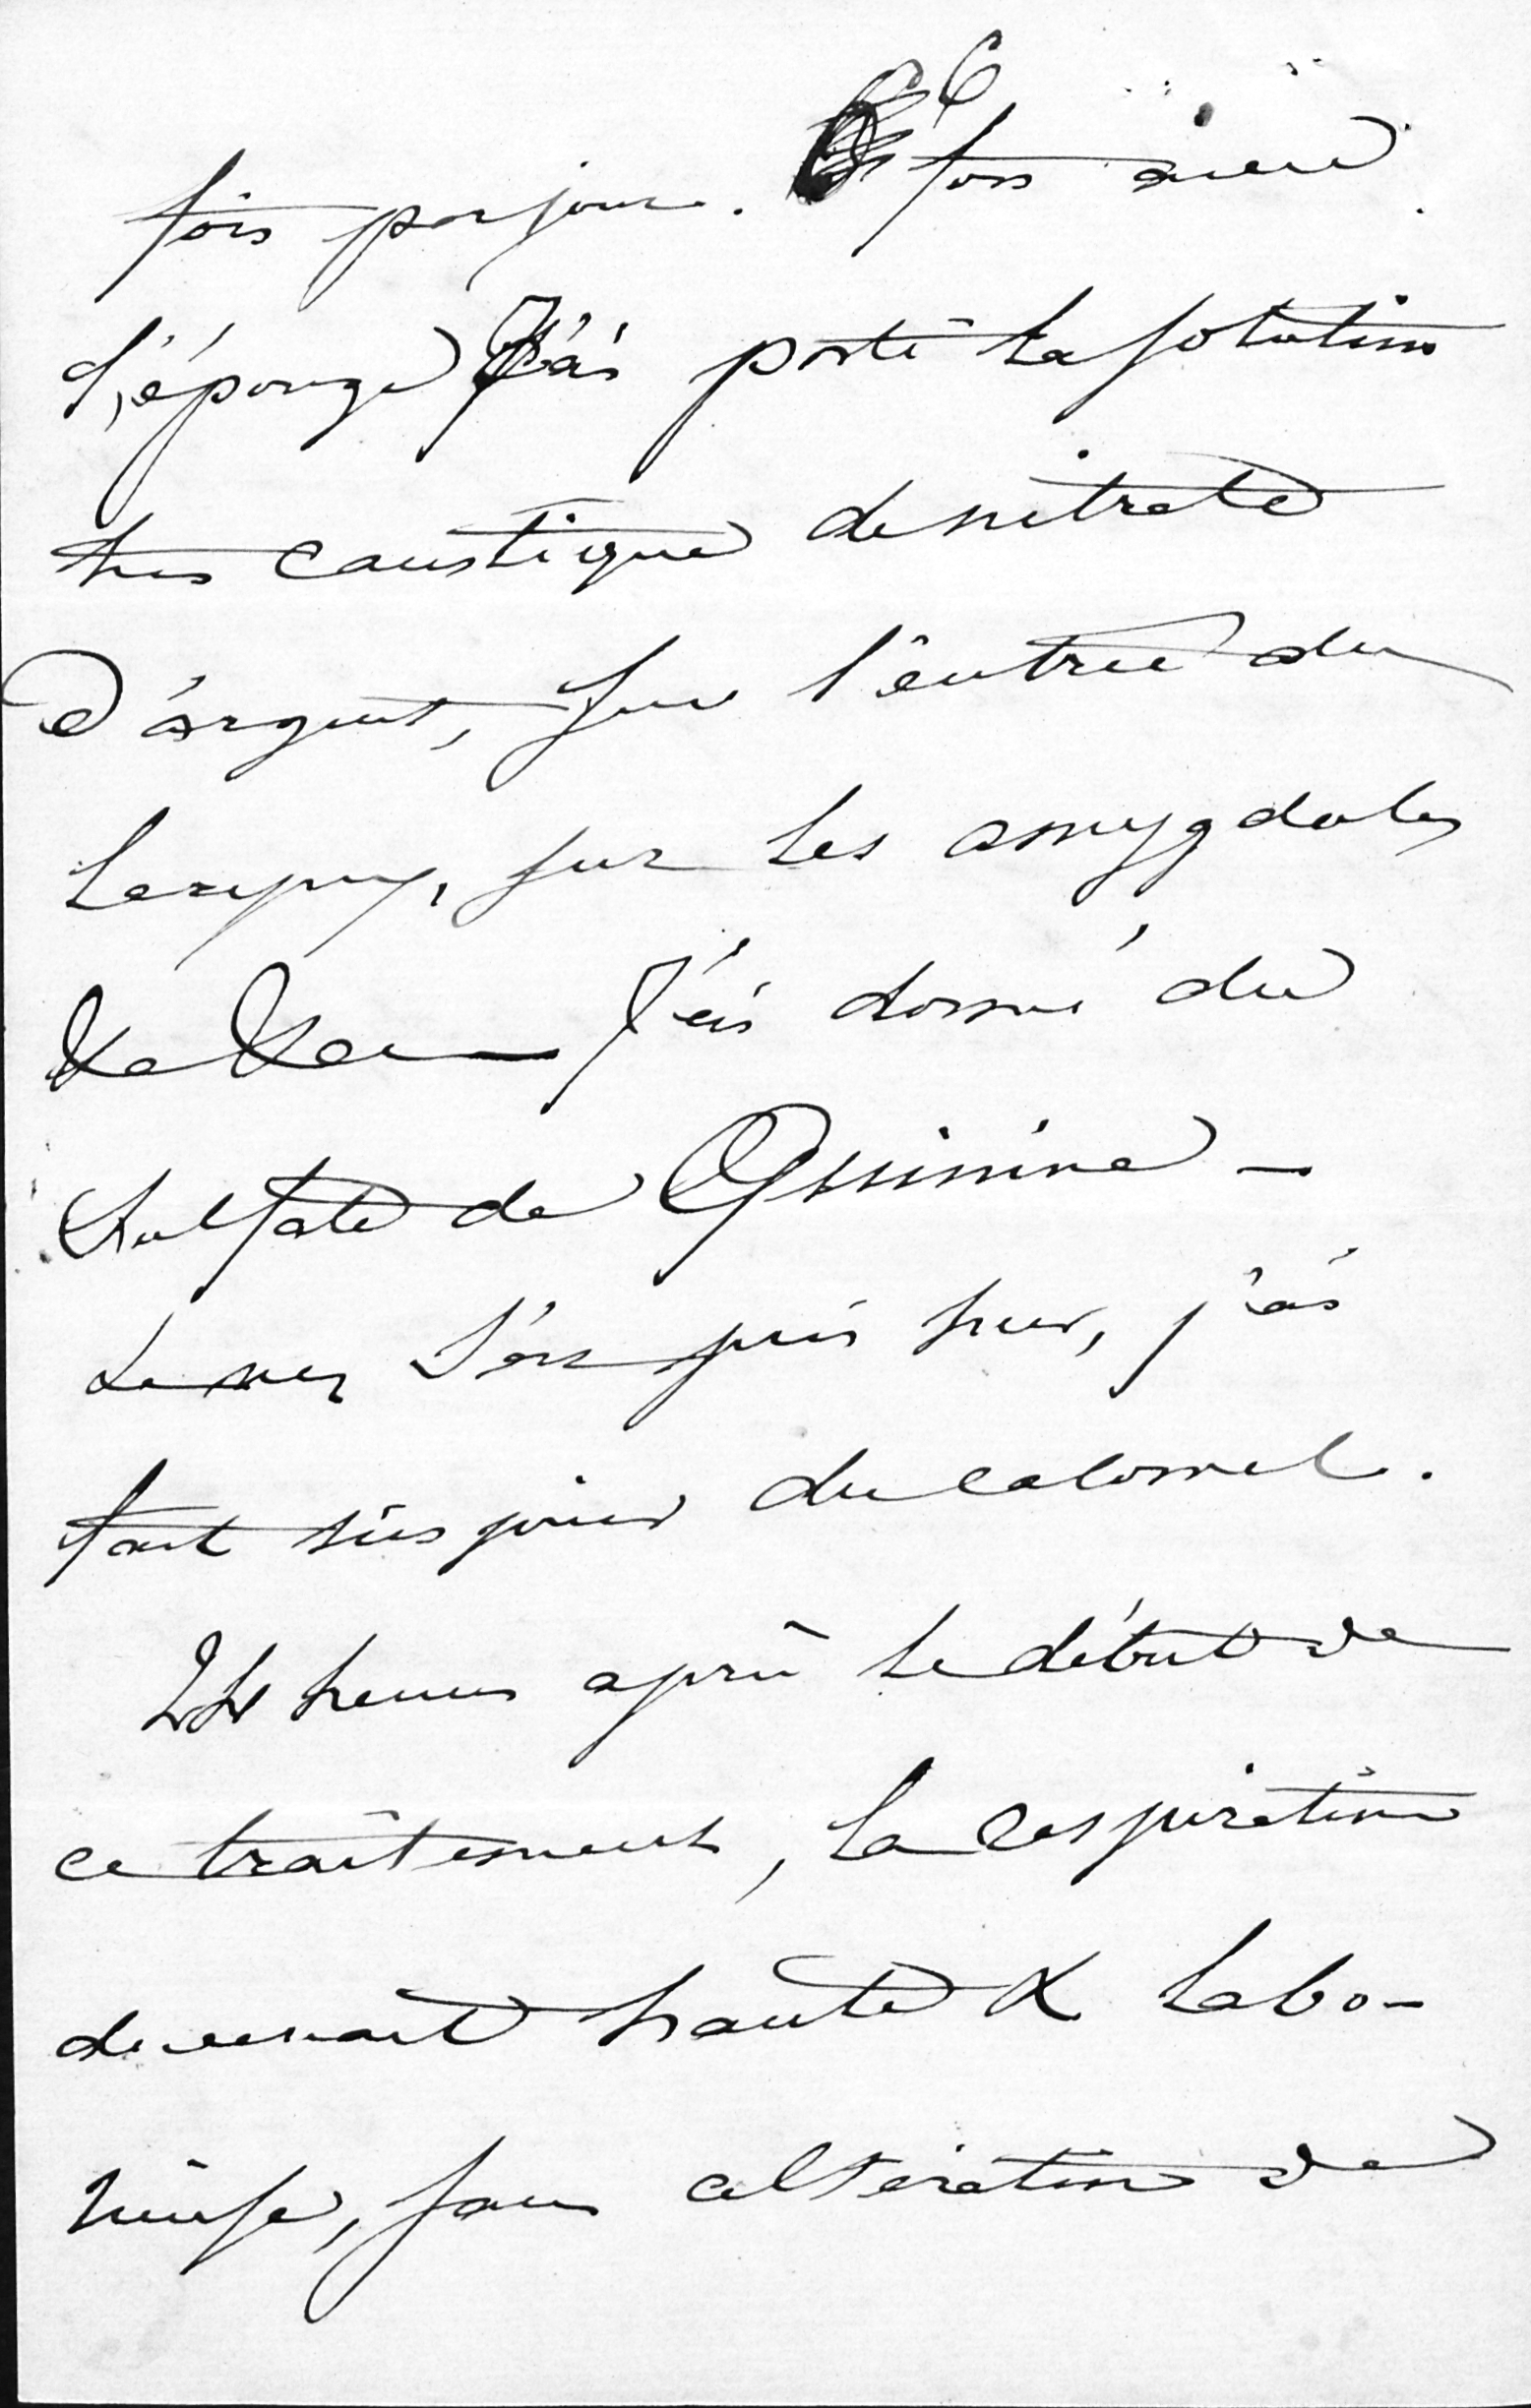 fois par jour. 6 fois avec
l'éponge J'ai porté la solution
très caustique de nitrate
d'argent, sur l'entrée du
larynx, sur les amygdales
&a &a — J'ai donné du
Sulfate de Quinine —
Le nez s'est pris hier, j'ai
fait aspirer du calomel.
24 heures après le début de
ce traitement, la respiration
devenait haute & labo-
rieuse, sans altération de